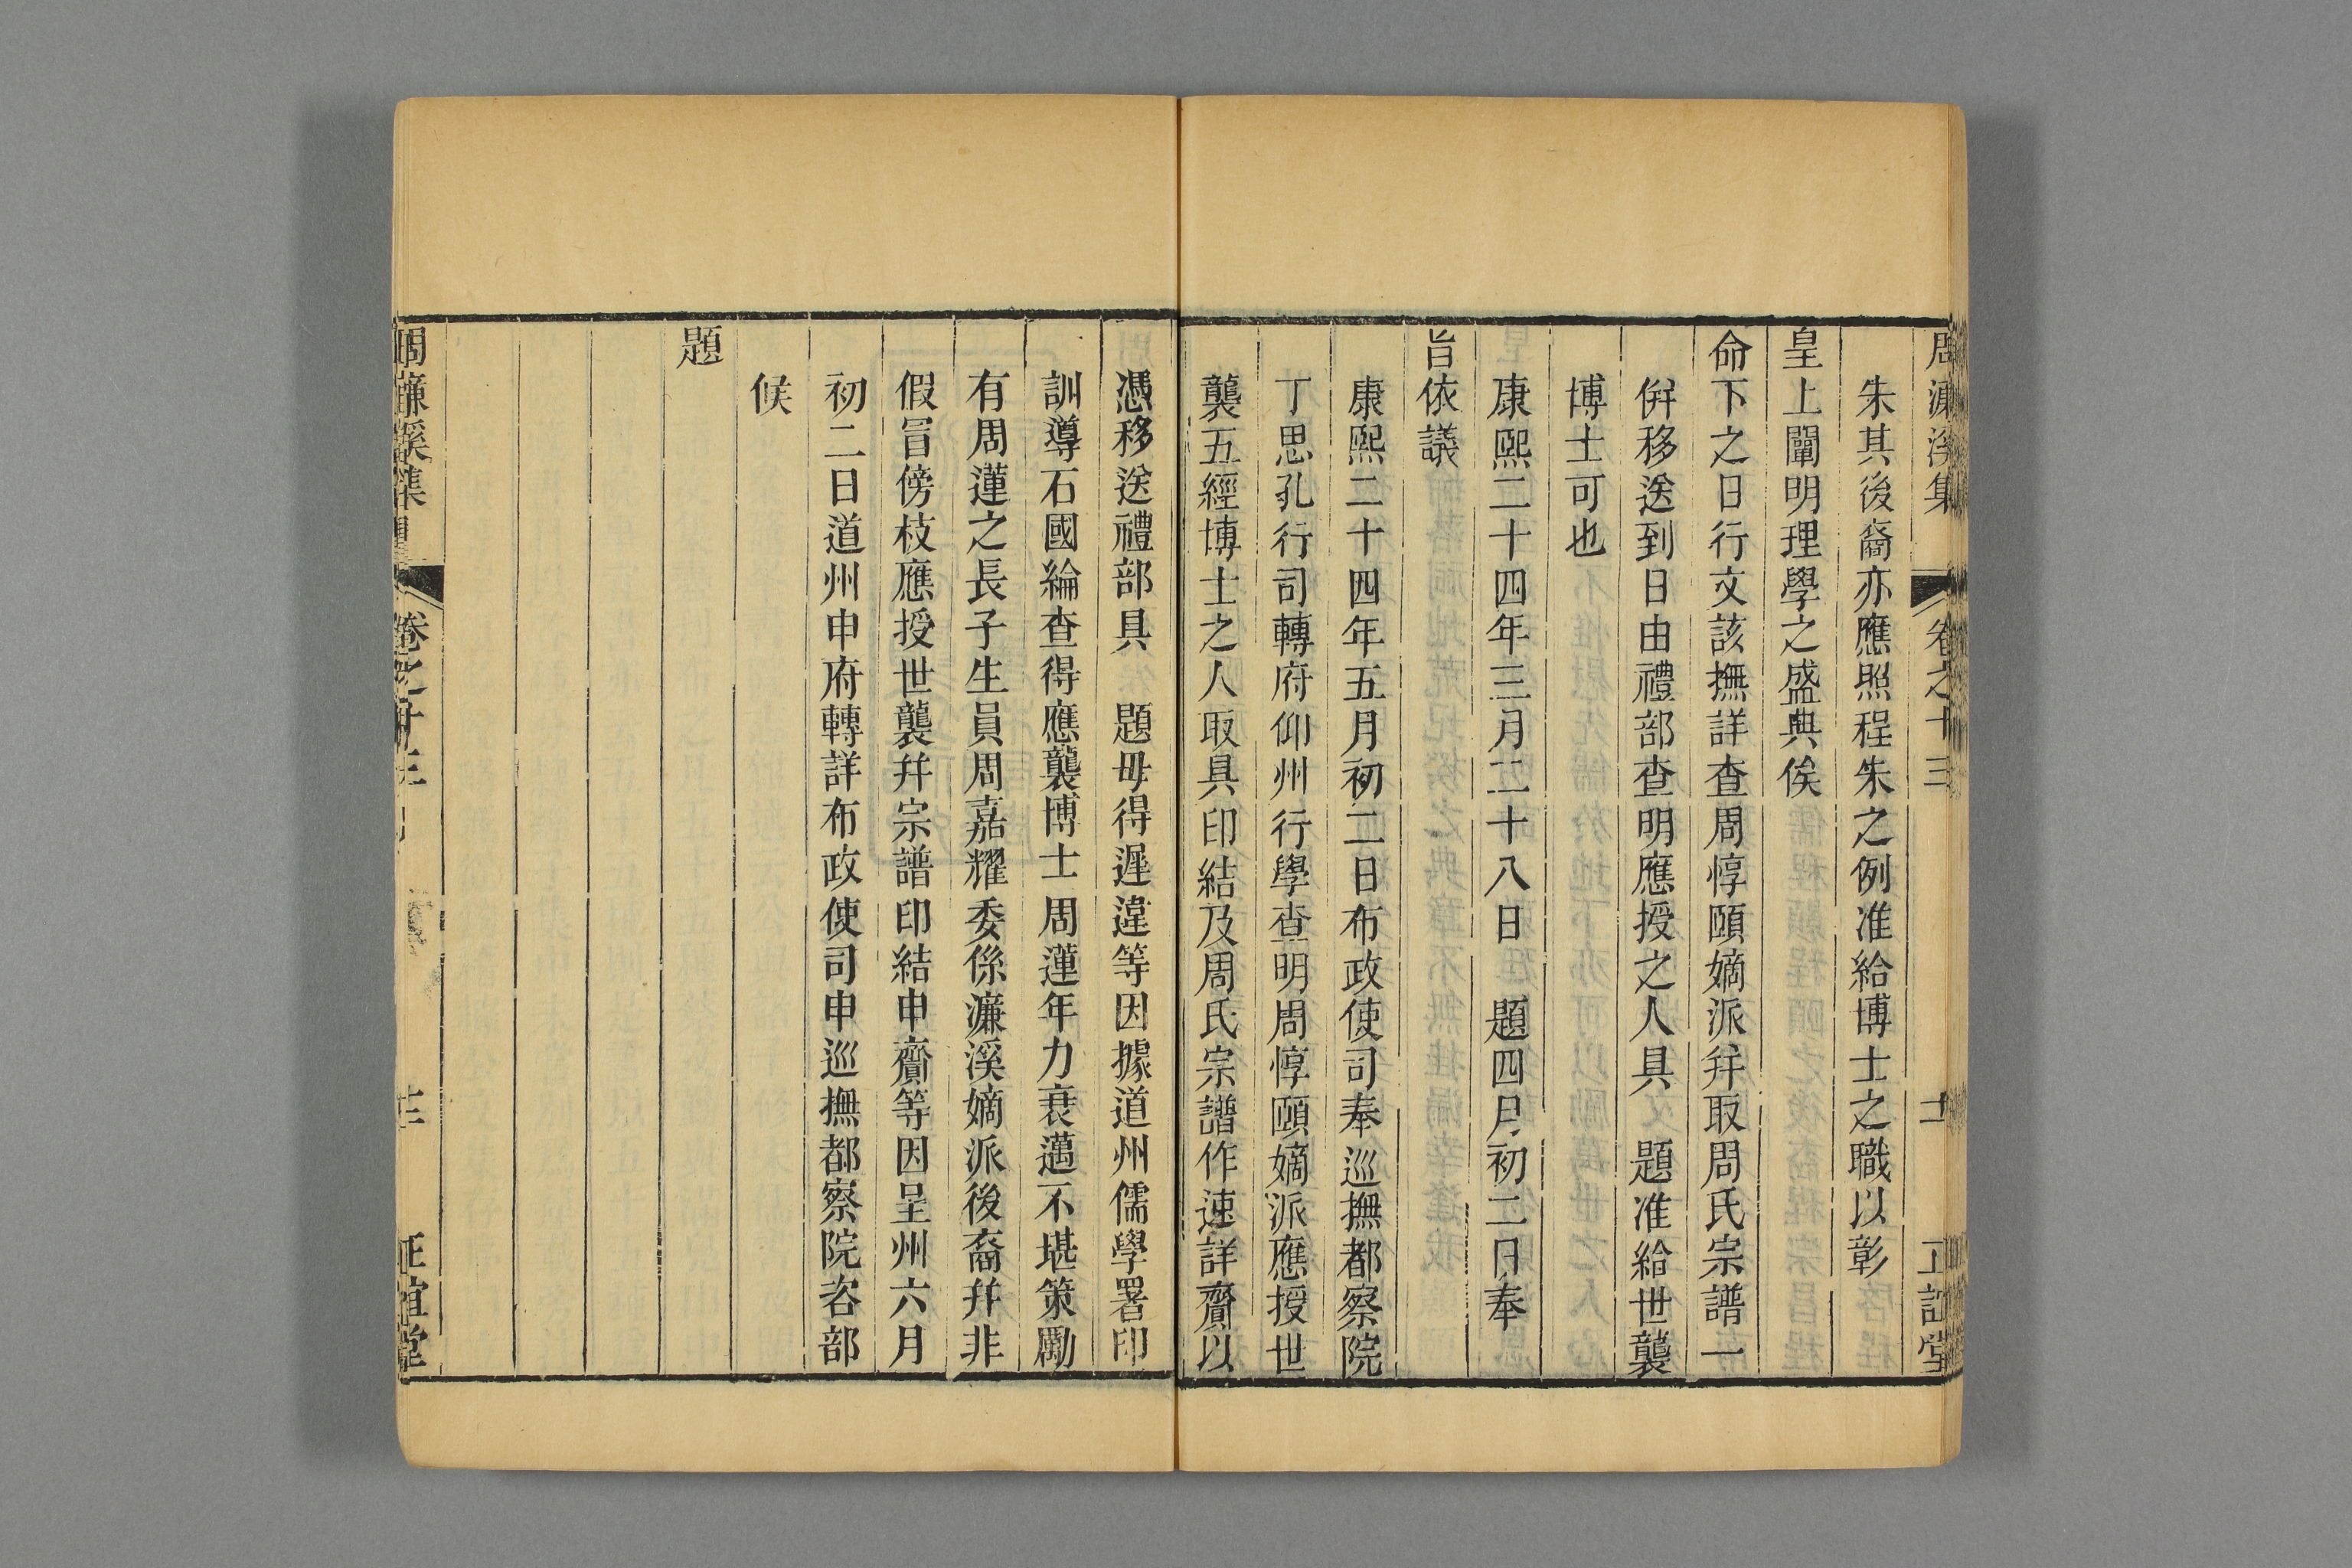 周濂溪集 卷之十三 十二 正誼堂
朱其後裔亦應照程朱之例准給博士之職以彰
皇上闡明理學之盛典俟
命下之日行文該撫詳查周惇頤嫡派幷取周氏宗譜一
併移送到日由禮部查明應授之人具 題准給世襲
博士可也
康熙二十四年三月二十八日 題四月初二日奉
旨依議
康熙二十四年五月初二日布政使司奉巡撫都察院
丁思孔行司轉府仰州行學查明周惇頤嫡派應授世
襲五經博士之人取具印結及周氏宗譜作速詳賫以
憑移送禮部具 題毋得遲違等因據道州儒學署印
訓導石國綸查得應襲博士周蓮年力衰邁不堪策勵
有周蓮之長子生員周嘉耀委係濂溪嫡派後裔幷非
假冒傍枝應授世襲幷宗譜印結申賫等因呈州六月
初二日道州申府轉詳布政使司申巡撫都察院咨部
候
題
周濂溪集 卷之十三 正誼堂